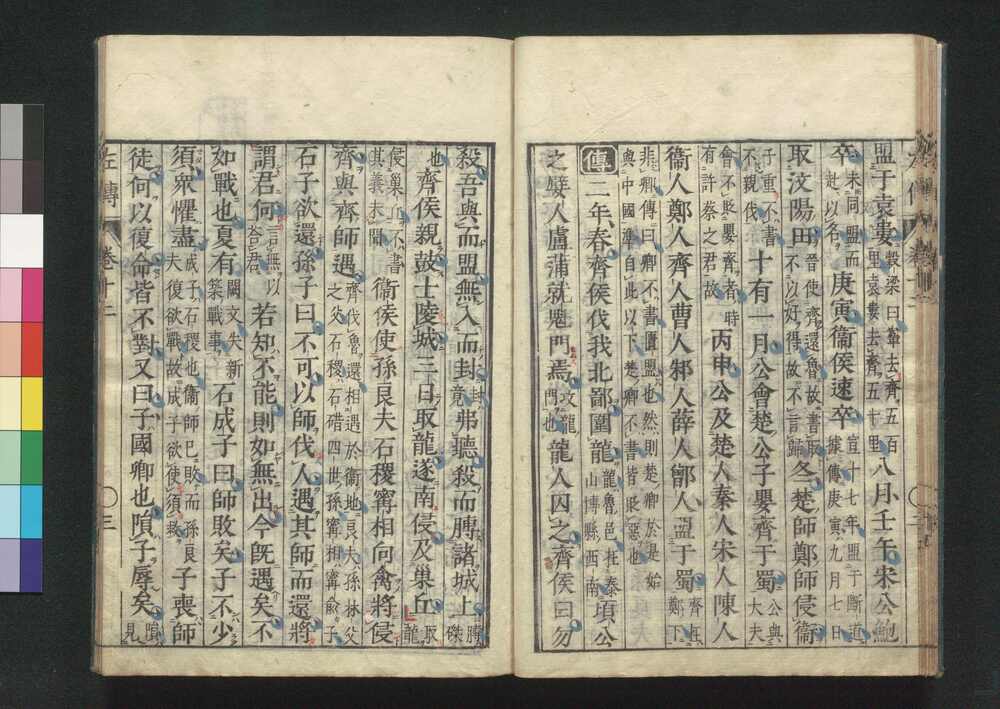 盟于袁婁穀梁曰鞌去齊五百里袁婁去齊五十里八月壬午宋公鮑
卒未同盟而赴以名庚寅衞侯速卒宣十七年盟于斷道據傳庚寅九月七日
取汶陽田晉使齊還魯故書取不以好得故不言歸冬楚師鄭師侵衞
子重不書不親伐十有一月公會楚公子嬰齊于蜀公與大夫
會不貶嬰齊者時有許蔡之君故丙申公及楚人秦人宋人陳人
衞人鄭人齊人曹人邾人薛人鄫人盟于蜀齊在鄭下
非卿傳曰卿不書匱盟也然則楚卿於是始與中國準自此以下楚卿不書皆貶惡也
傳二年春齊侯伐我北鄙圍龍龍魯邑在泰山博縣西南頃公
之嬖人盧蒲就魁門焉攻龍門也龍人囚之齊侯曰勿
殺吾與而盟無入而封封竟弗聽殺而膊諸城上膊磔
也齊侯親鼓士陵城三日取龍遂南侵及巢丘取龍
侵巢丘不書其義未聞衞侯使孫良夫石稷甯相向禽將侵
齊與齊師遇齊伐魯還相遇於衞地良夫孫林父之父石稷石碏四世孫甯相甯俞子
石子欲還孫子曰不可以師伐人遇其師而還將
謂君何言無以荅君若知不能則如無出今既遇矣不
如戰也夏有闕文失新築戰事石成子曰師敗矣子不少
須衆懼盡成子石稷也衞師已敗而孫良夫復欲戰故成子欲使須救子喪師
徒何以復命皆不對又曰子國卿也隕子辱矣隕見
左傳
卷十二
三